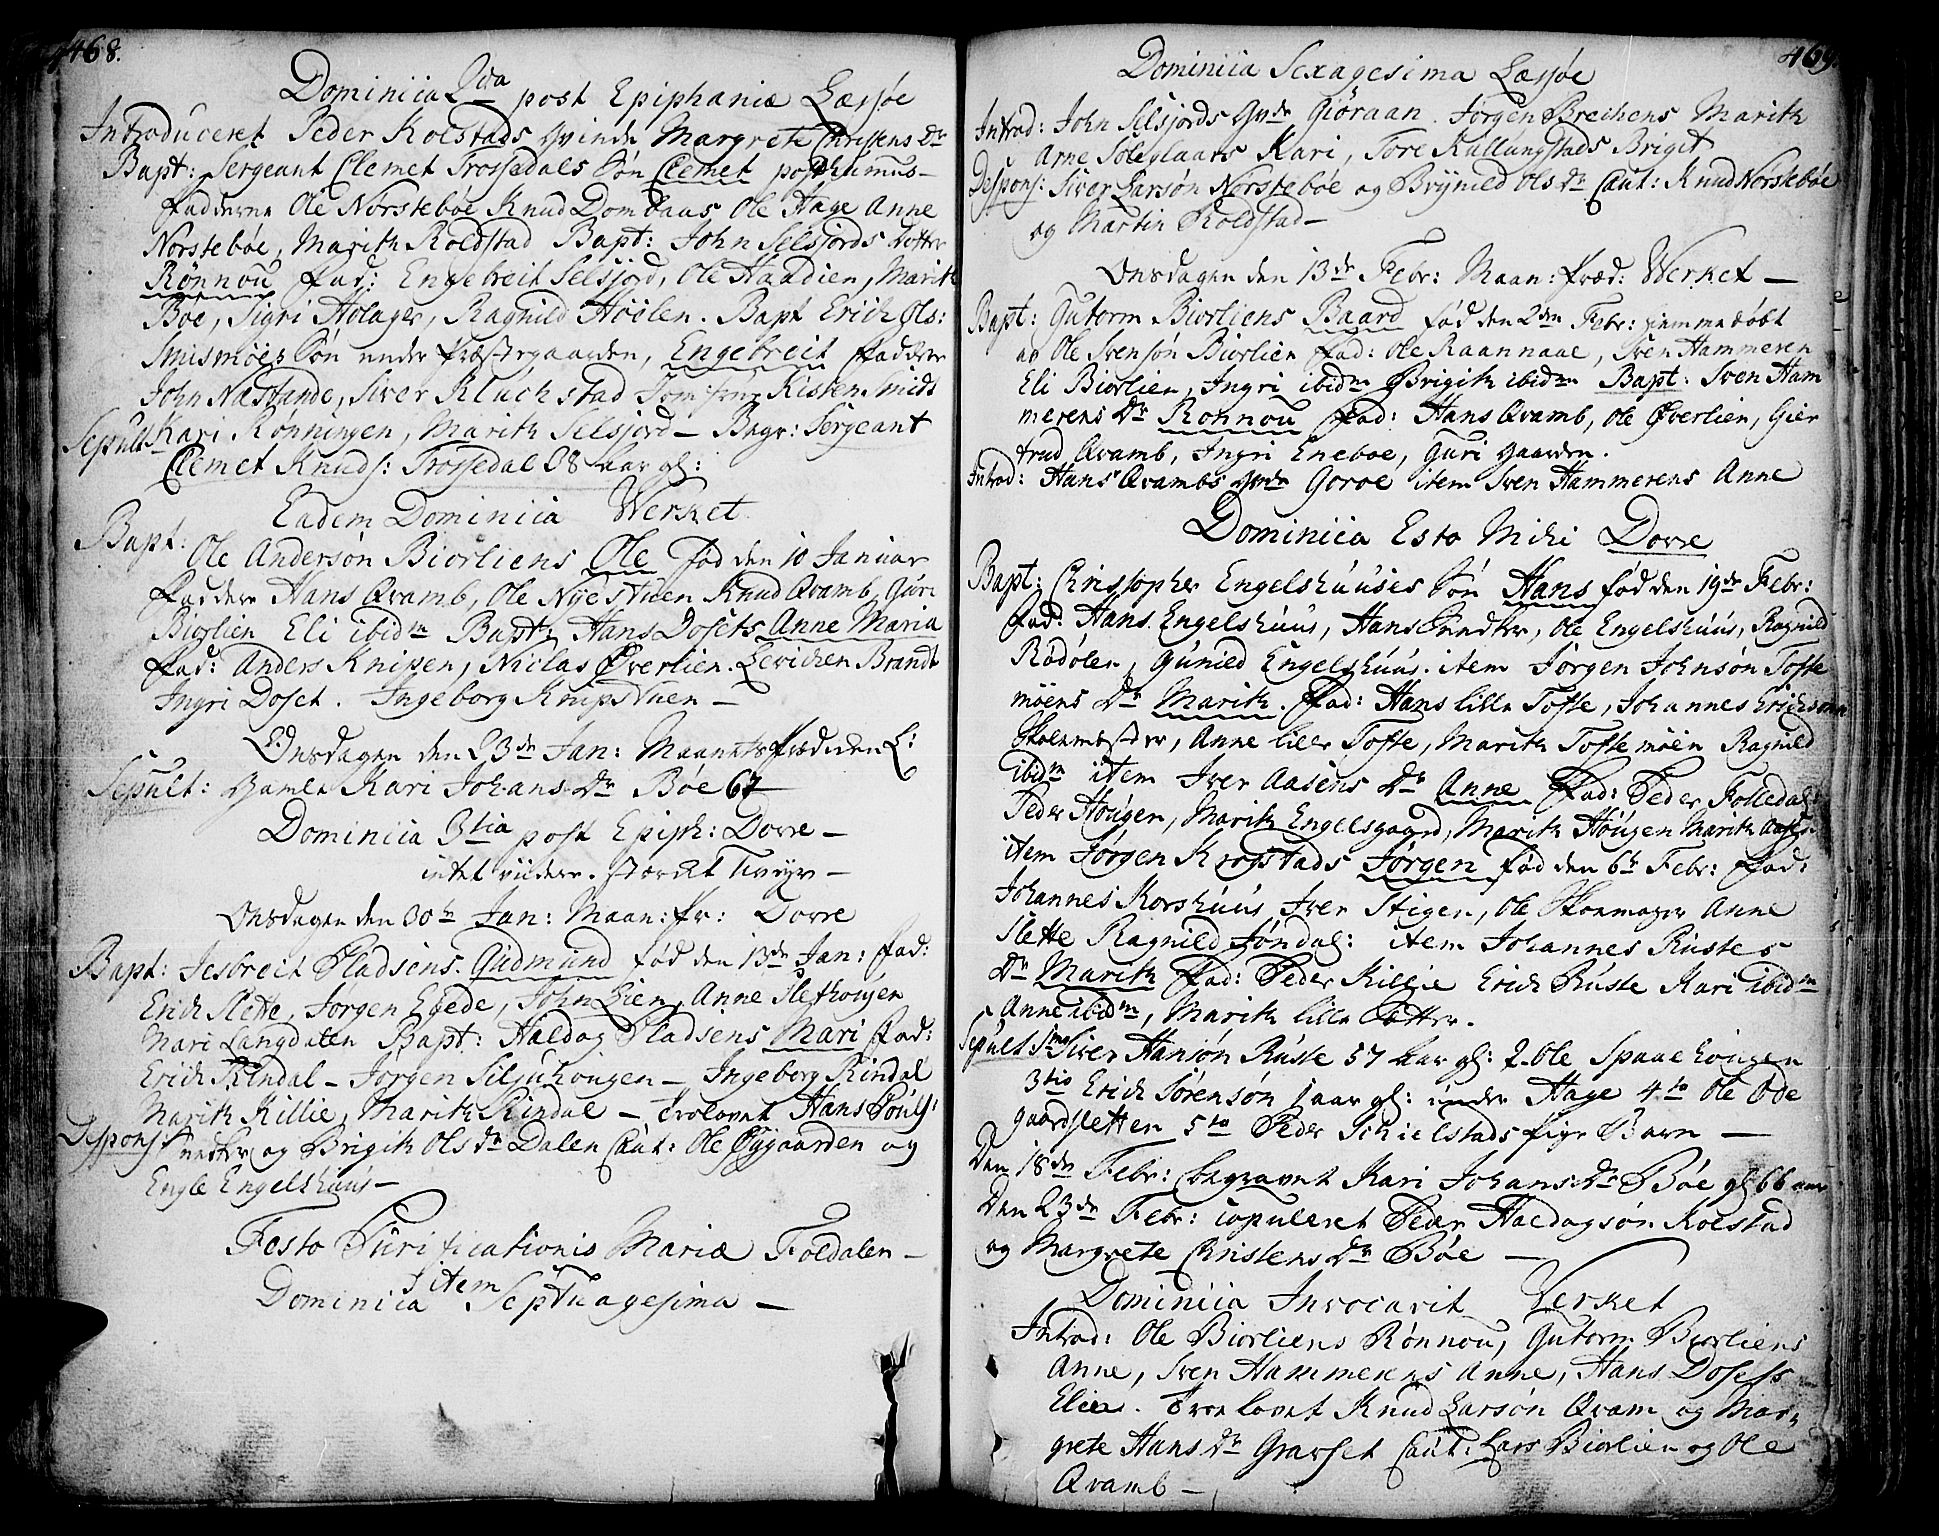 468.
Dominica 2da post Epiphaniæ Læssøe
Introduceret Peder Kolstads Qvinde Margrete Christens Dr
Bapt: Sergeant Clemet Trossedals Søn Clemet posthumus-
Fadderne Ole Norstebøe Knud Dombaas Ole Hage Anne
Norstebøe, Marith Koldstad Bapt: John Selsjords Dotter
Rönnou Fad: Engebreit Selsjord, Ole Haadien, Marith
Bøe, Sigri Holager, Ragnild Høølen. Bapt Erich Ols:
Smismøes Søn under Præstegaarden, Engebreit Fadderne
John Næstande, Siver Kluchstad Kisten Smids
Kari Rönningen, Marith Selsjord - Begr: Sergeant
Sepult
Clemet Knuds: Trossedal 38 Aar gl:
Eadem Dominica Werket
Bapt:
Ole Andersøn Biorliens Ole fød den 10 Januar
Faddere Hans Qvamb, Ole Nyestuen Knud Qvamb, Guri
Biorlien Eli ibidm Bapt: Hans Dosets Anne Maria
Fad: Anders Knipen, Niclas Øverlien. Levichen Brandt
Ingri Doset. Ingeborg Knipstuen -
Onsdagen den 23de Jan: Maanets Prædiken L:
Sepult: gamle Kari Johans Dr Bøe 67
Dominica 3tia post Epiph: Dovre -
intet videre. stordt Tveyr -
Onsdagen den 30te Jan: Maan: Pr: Dovre
Bapt: Jesbreit Pladsens. Gudmund fød den 13de Jan: Fad:
Erich Slette, Jørgen Egede, John Lien, Anne Slethougen
Mari Langdalen Bapt: Haldog Pladsens Mari Fad:
Erich Rindal - Jørgen Siljuhougen - Ingeborg Rindal
Marith Killie, Marith Rindal - Trolovet Hans Pouls:
Dispons
og Brigith Ols dr Dalen Caut: Ole Øygaarden og
Engle Engelshuus-
Festo Purificationis Mariæ Foldalen -
item
Dominica Septuagesima -
469.
Dominica Sexagesima Læssøe
Introd: John Selsjords Qvde Giøraan. Jørgen Breikens Marith
Arne Soleglaars Kari, Tore Kullungstads Brigit
Dispons: Siver Larsøn Norstebøe og Brynild Ols dr Caut: Knud Norstebøe
og Martin Koldstad -
Onsdagen den 13de Febr: Maan: Præd: Werket -
Bapt: Gutorm Biorliens Baard fød den 2den Febr: hjemmedøbt
av Ole Svensøn Biorlien Fad: Ole Raannaae, Sven Hammeren
Eli Biorlien, Ingri ibidm Brigith ibidm Bapt: Sven Ham
merens Dr Ronnou Fad: Hans Qvamb, Ole Øverlien, Gier
trud Qvamb, Ingri Eneboe, Guri gaarden.
Introd: Hans Qvambs Qvde Goroe item Sven Hammerens Anne
Dominica Esto Mihi Dovre
Bapt: Christopher Engelshuuses Søn Hans fød den 19de Febr:
Fad: Hans Engelshuus, Hans Snedker, Ole Engelshuus, Ragnild
Rødølen, Gunild Engelshuus. item Jørgen Johnsøn Tofte
møens Dr Marith. Fad: Hans lille Tofte, Johannes Erichsøn
Skolemester, Anne lille Tofte, Marith Toftemøen Ragnild
ibidm item Iver Aasens Dr Anne Fad: Peder Folledal:
Peder Hougen, Marith Engelsgaard, Marith Hougen Marith Aasen
item Jørgen Krogstads Jørgen fød den 6te Febr: Fad:
Johannes Korshuus Iver Stigen, Ole Skomager Anne
Slette Ragnild Jøndal: item Johannes Rustes
Dr Marith Fad: Peder Killie Erich Ruste Kari ibidm
Anne ibidm, Marith lille Sætter.
Sepult 1mo Siver Hansøn Ruste 57 Aar gl: 2. Ole Spaaehougen
3tio Erich Sørensøn 1 aar gl: under Hage 4to Ole Øde
gaardsletten 5to Peder Schielstads Pige Barn -
Den 18de Febr: begravet Kari Johans Dr Bøe gl 66 aar
Den 23de Febr: copuleret Peder Haldogsøn Kolstad
og Margrete Christens Dr Bøe -
Dominica Invocavit Verket
Introd: Ole Biorliens Rønnou, Gutorm Biorliens
Anne, Sven Hammerens Anne, Hans Dosets
Elie. Trolovet Knud Larsøn Qvam og Mar-
grete Hans Dr Gravset Caut: Lars Biorlien og Ole
Qvamb -